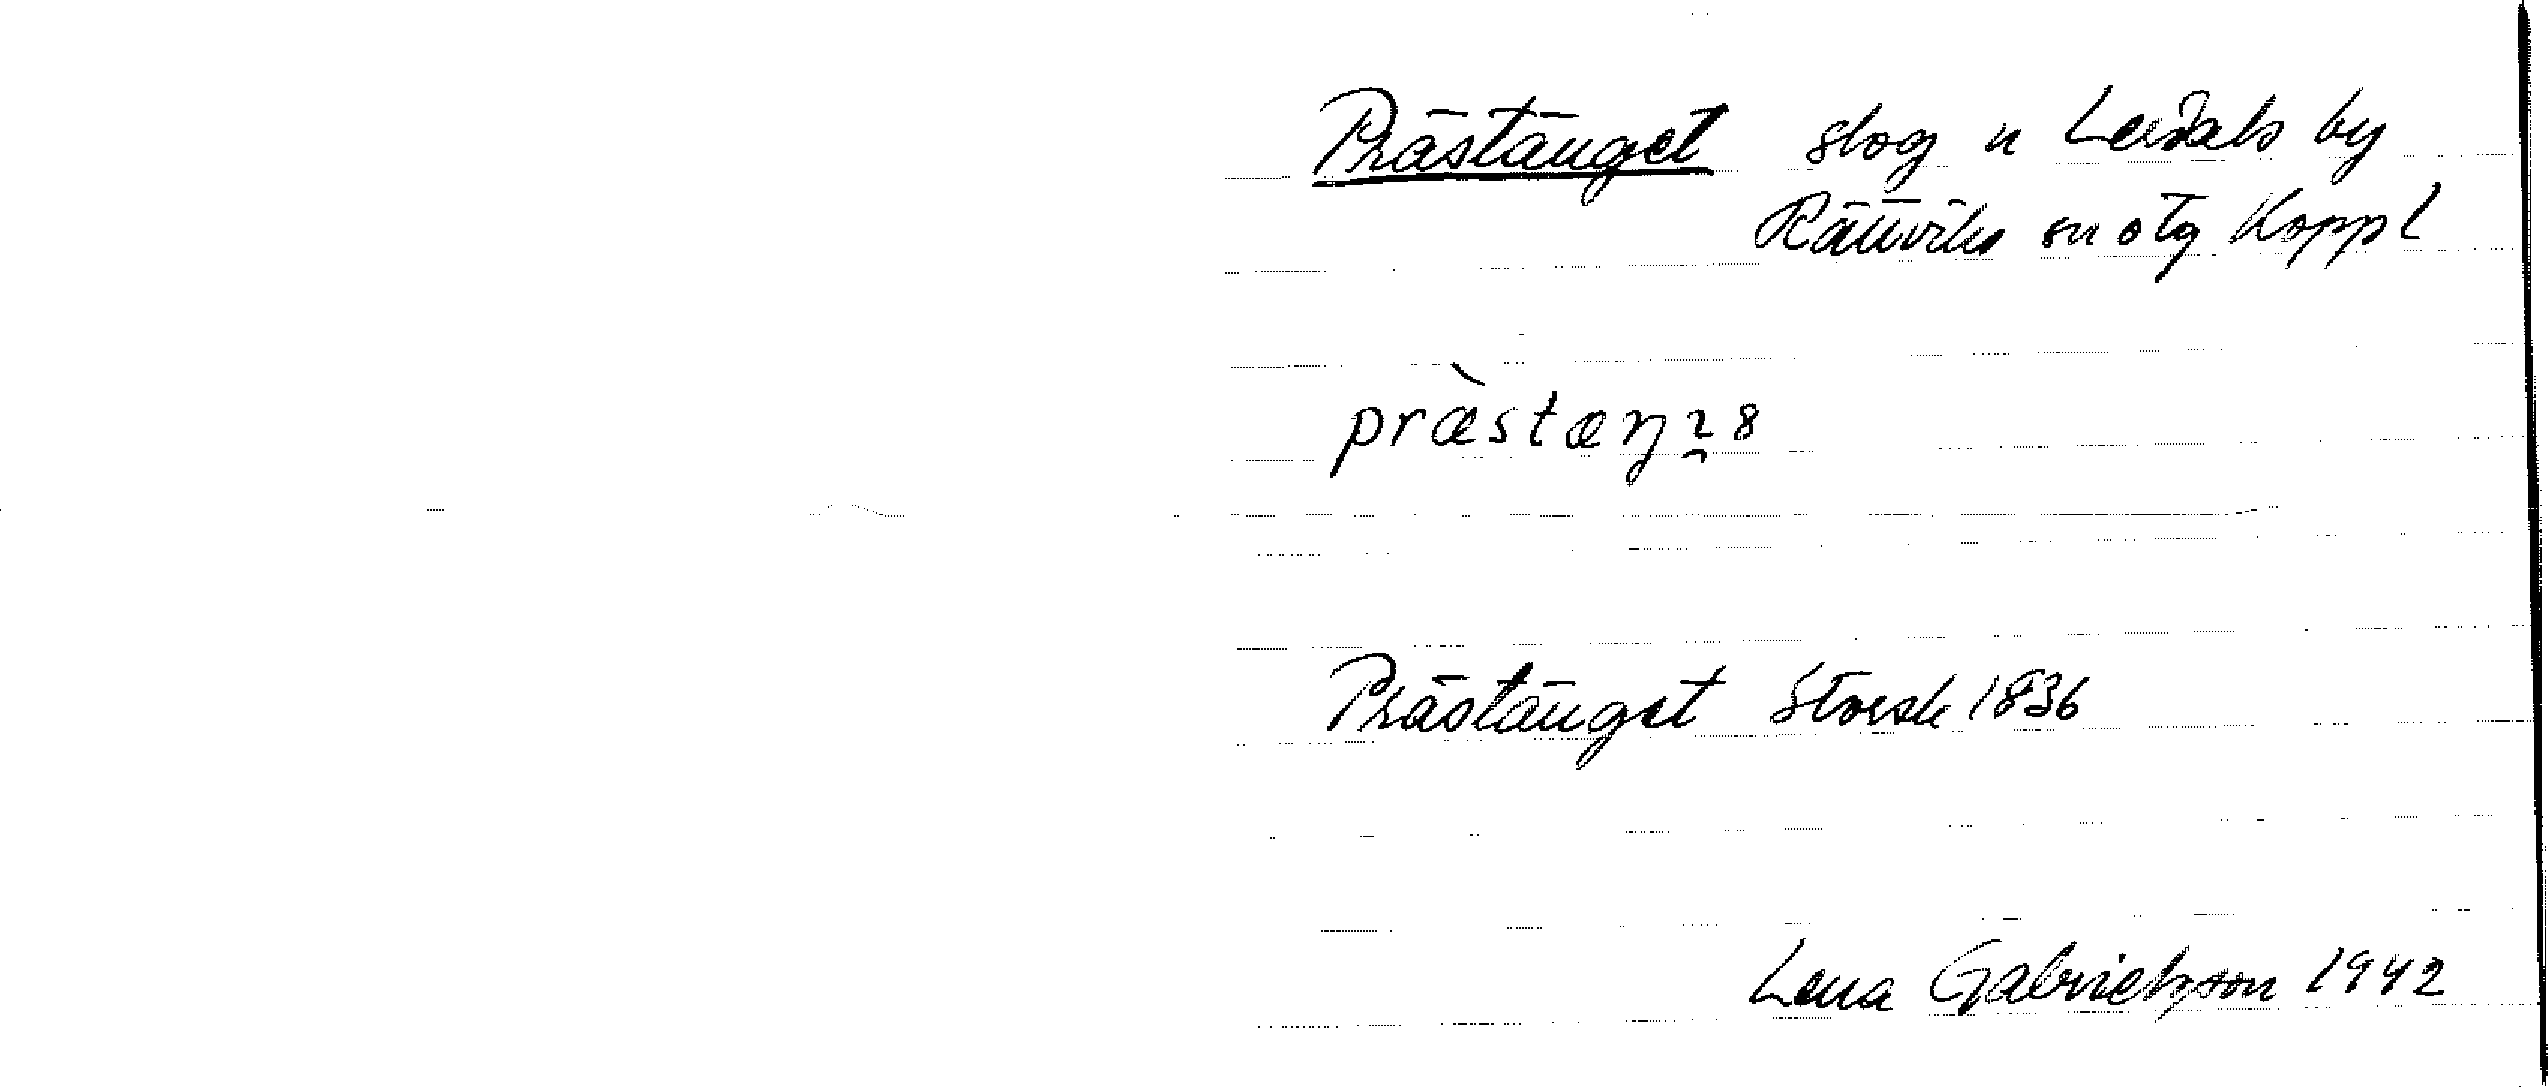 Prästänget slog u Leksals by
Rättviks sn o tg Koppl
præ̀stæŋ
Prästänget Storsk 1836
Lena Gabrielsson 1942